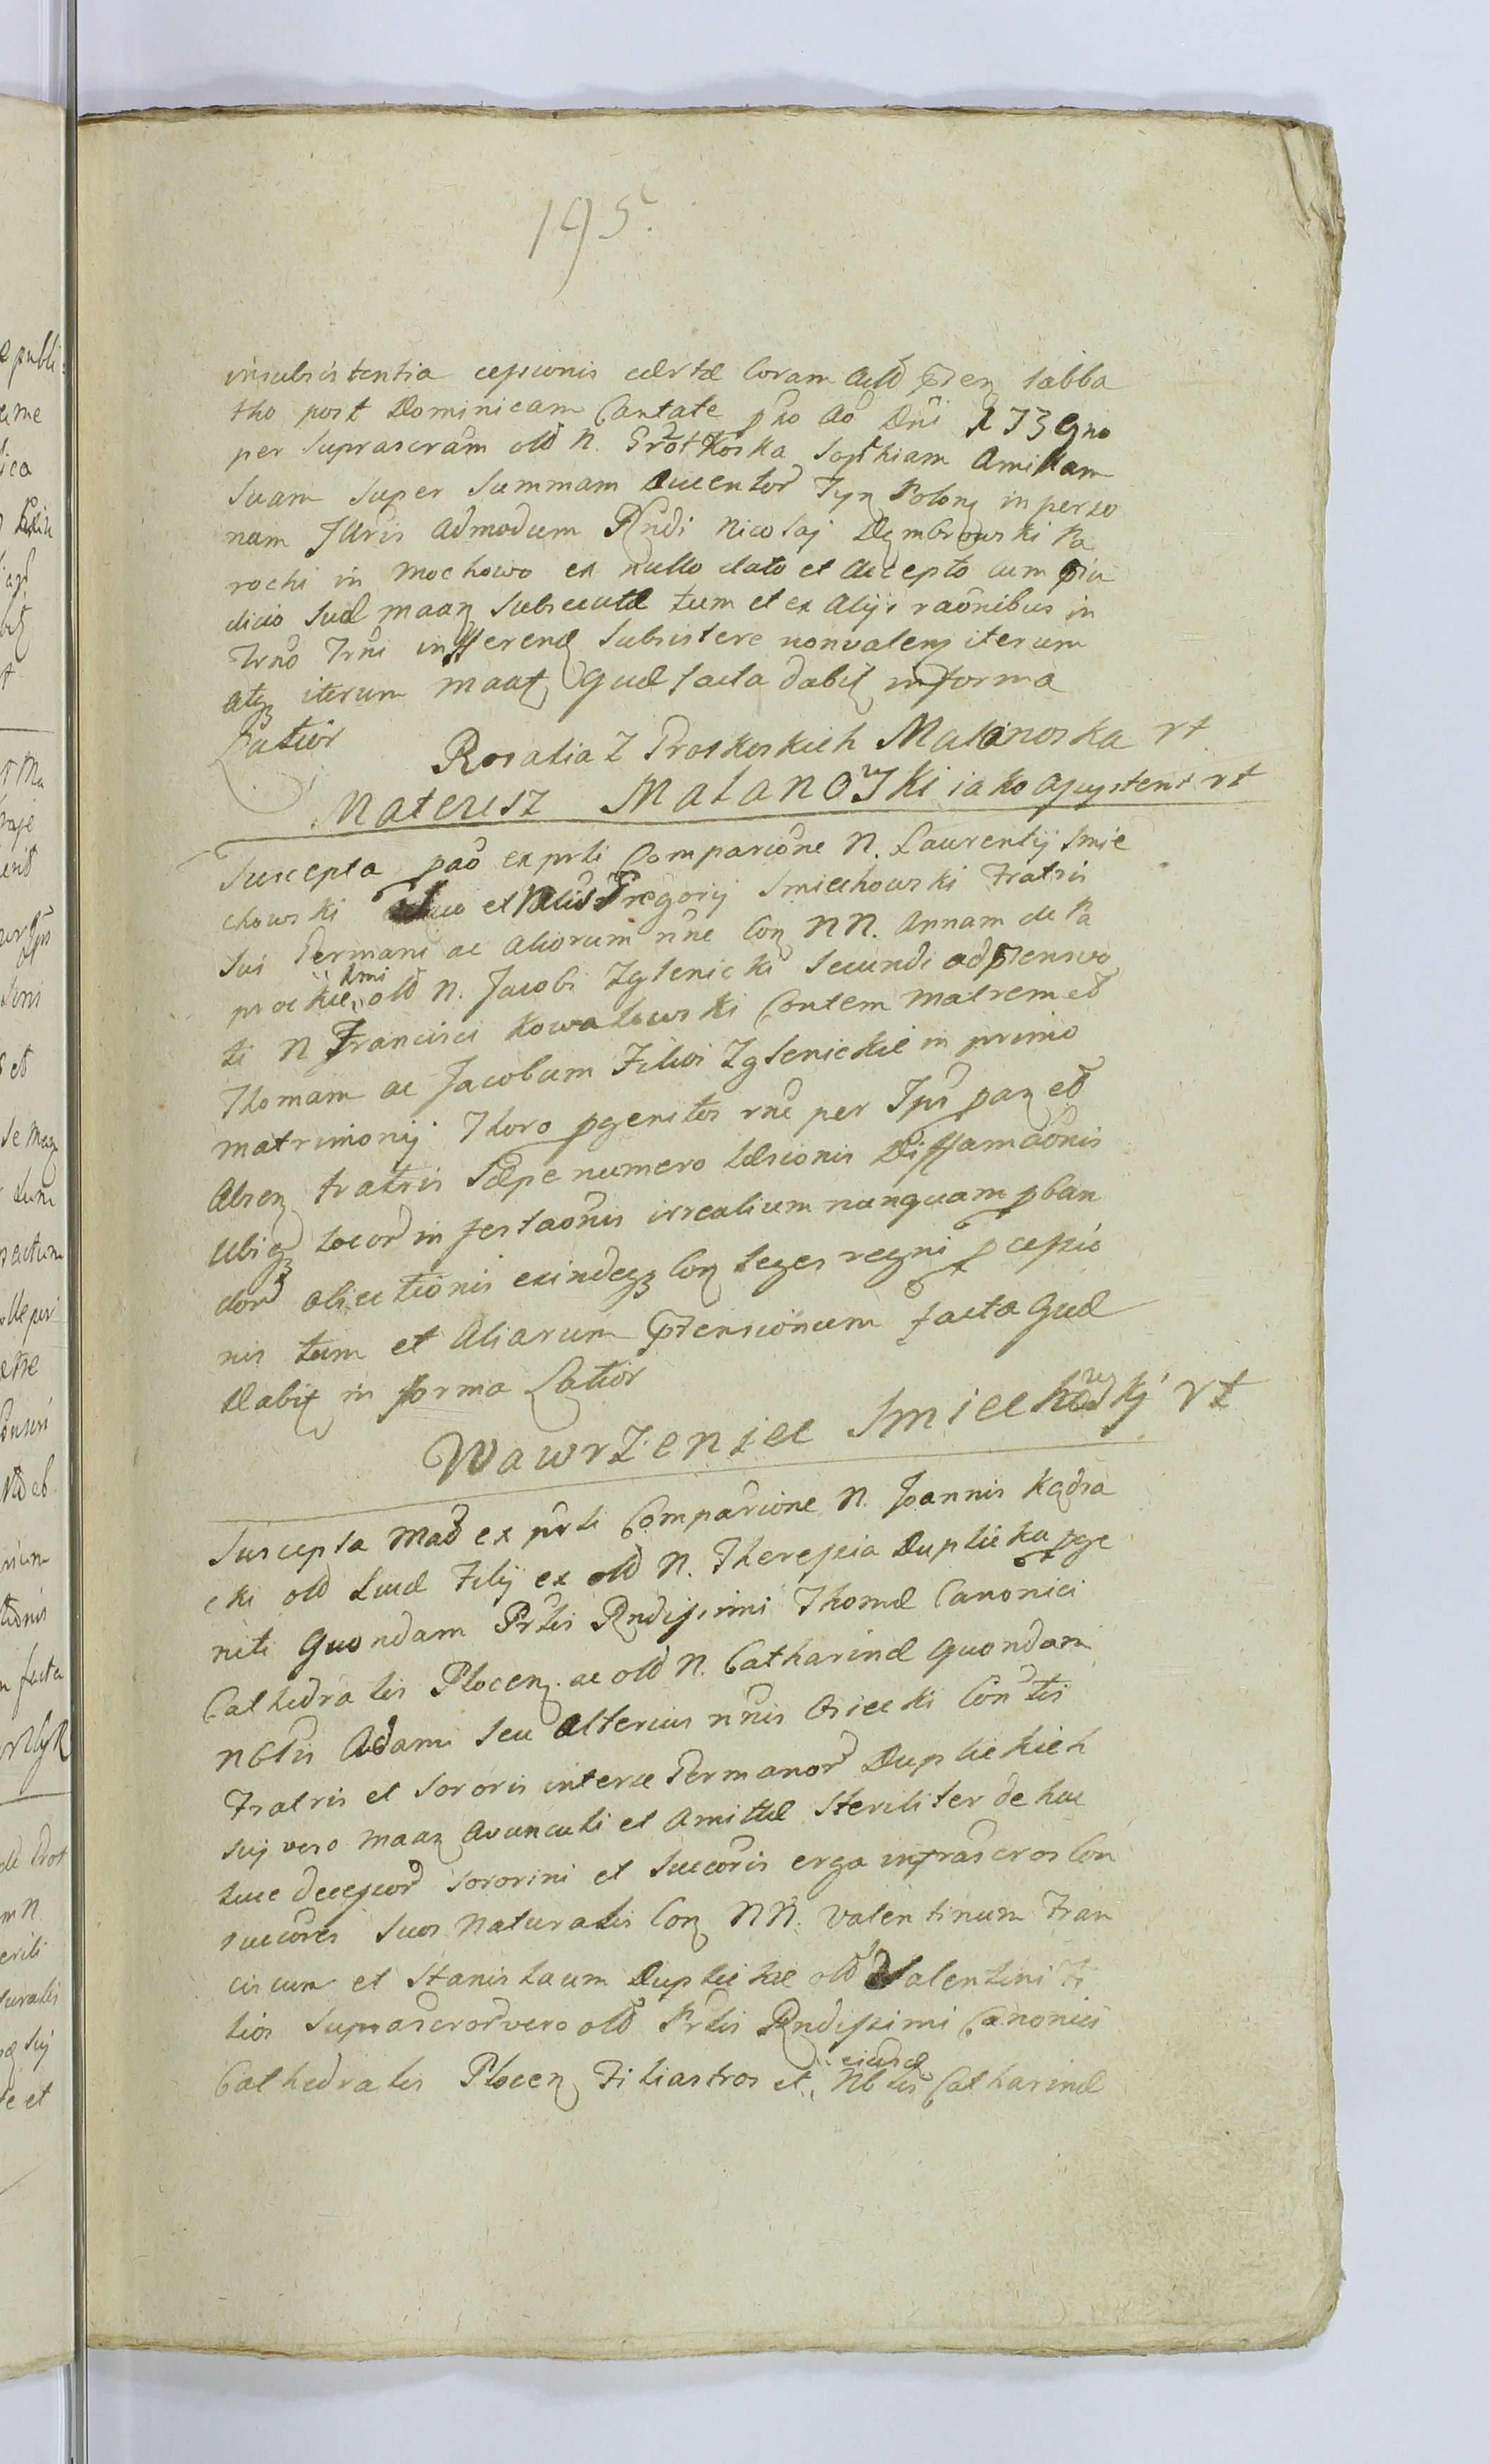 195.
insubsistentia cessionis certæ Coram Actis pñ Sabba
tho post Dominicam Cantate pñto Ao Dni 1739no
per Suprascram olim N. Grotkoska Sophiam Amittam
Suam Super Summam Ducentor Tyn Polonz in perso
nam Illris Admodum Rndi Nicolaj Dembrowski Pa
rochi in Mochowo ex nullo dato et accepto cum præiu
dicio Suæ maanz Subsecutæ tum et ex Alijs raonibus in
Trno Trni inferendz Subsistere nonvalenz iterum
atqz iterum maatz Quæ facta dabitz informa
Latior
Rosalia Z Protkoskich Malanoska rt
Mateusz Malanowski iako assystent rt
Suscepta pao ex prti Comparione N. Laurentij Smie
chowski Suo et Nblis Gregorij Smiechowski Fratris
Sui Germani ac Aliorum nne Conz NN. Annam de Pa
prockie 1mi olim N. Jacobi Zglenicki Secundi ad pñens vo
ti N Francisci Kowalewski Contem Matrem et
Thomam ac Jacobum Filios Zglenickie in primo
matrimonij Thoro pgenitos rne per Ips panz et
Absenz fratris Sæpe numero læsionis Diffamaonis
Ubiqz locor infestaonis irrealium nunquam pban
dor obiectionis exindeqz Conz Leges regni pcessio
nis tum et Aliarum prætensionum facta Quæ
Dabitz in forma Latior
Wawrzeniec Smiechowskj rt
Suscepta Mao ex prti Comparione N. Joannis Kędra
cki olim Lucæ Filij ex olim N. Theressia Duplicka pge
niti Quondam Prlis Rndissimi Thomæ Canonici
Cathedralis Plocenz. ac olim N. Catharinæ Quondam
Nblis Adami Seu Alterius nnis Osiecki Contis
Fratris et Sororis interse Germanor Duplickich
Sui vero maanz Avunculi et Amittæ Steriliter de hac
luce decessor Sororini et Succoris erga infrascros Con
succores Suos Naturales Conz NN. Valentinum Fran
ciscum et Stanislaum Duplickie olim Valentini Fi
lios Suprascror vero olim Prlis Rndissimi Canonici
Cathedralis Plocenz Filiastros et eiusd Nblis Catharinæ